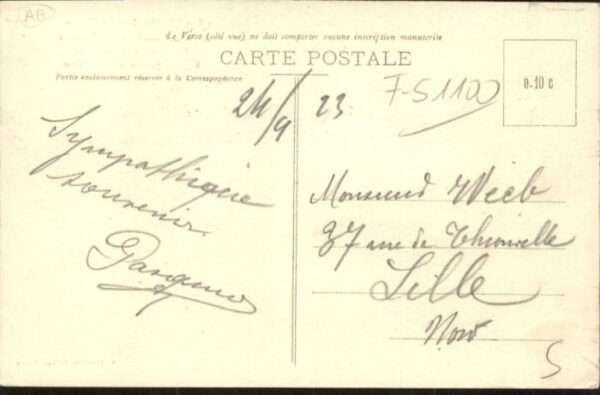 AB
Le Verso (côté vue) ne doit comporter aucune inscription manuscrite
CARTE POSTALE
Partie exclusivement réservée à la Correspondance
0.10 c
F-51100
24/9 23
Sympathique
souvenir
Monsieur Weeb
37 rue de Thionville
Lille
Nord
S